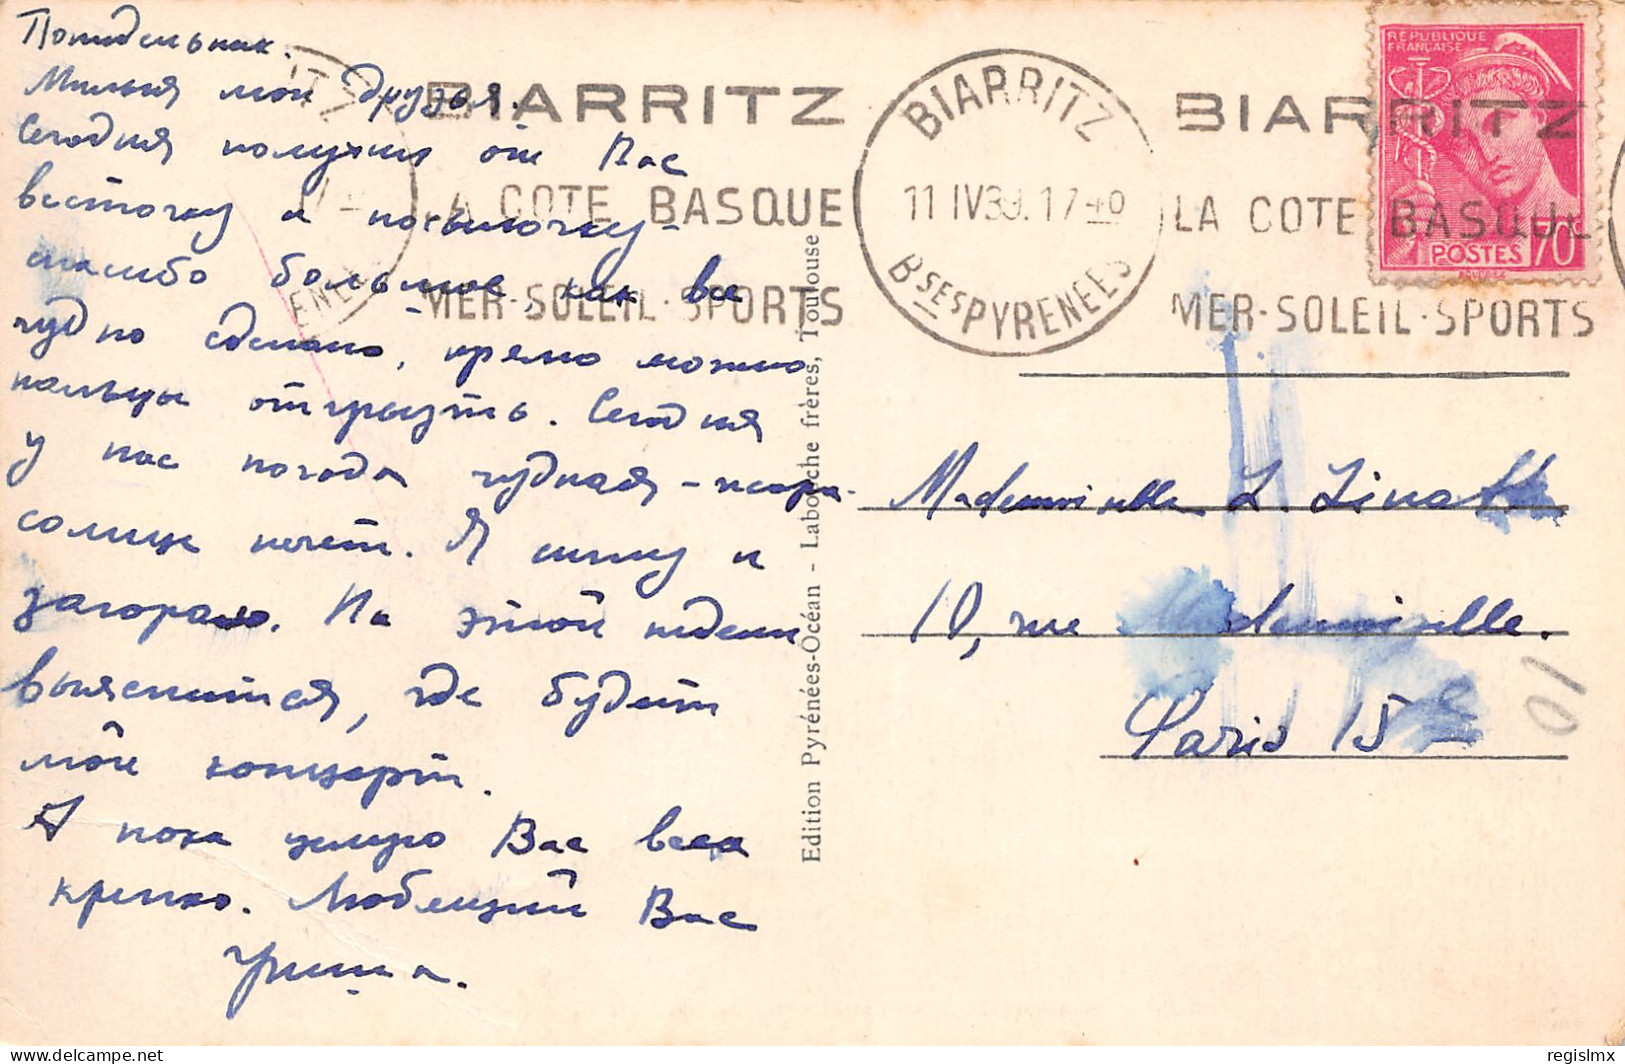 Понедельник.
Милыя мои друзья.
Сегодня получил от Вас
весточку и посылочку-
спасибо большое, как все
чудно сделано, прямо можно
пальцы отгрызть. Сегодня
у нас погода чудная -
солнце печет. Я сижу и
загораю. На этой недели
выяснится, где будет
мой концерт.
А пока целую Вас всех
крепко. Любящий Вас
Гриша.
BIARRITZ
LA COTE BASQUE
MER-SOLEIL-SPORTS
BIARRITZ
11 IV 39. 17 40
BSES PYRENEES
BIARRITZ
LA COTE BASQUE
MER-SOLEIL-SPORTS
REPUBLIQUE
FRANÇAISE
POSTES 70c
Edition Pyrénées-Océan - Labouche frères, Toulouse
Mademoiselle L.
10, rue Mademoiselle.
Paris 15e
delcampe.net
regislmx